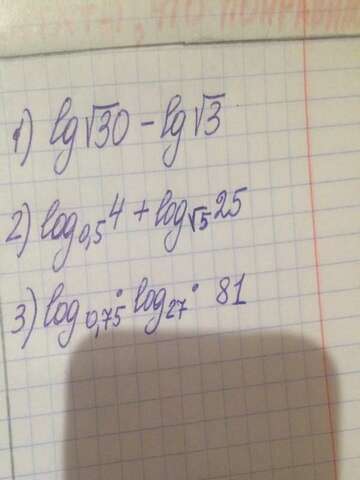 1) lg√30 − lg√3
2) log₀,₅ 4 + log√5 25
3) log₀,₇₅ · log₂₇ · 81